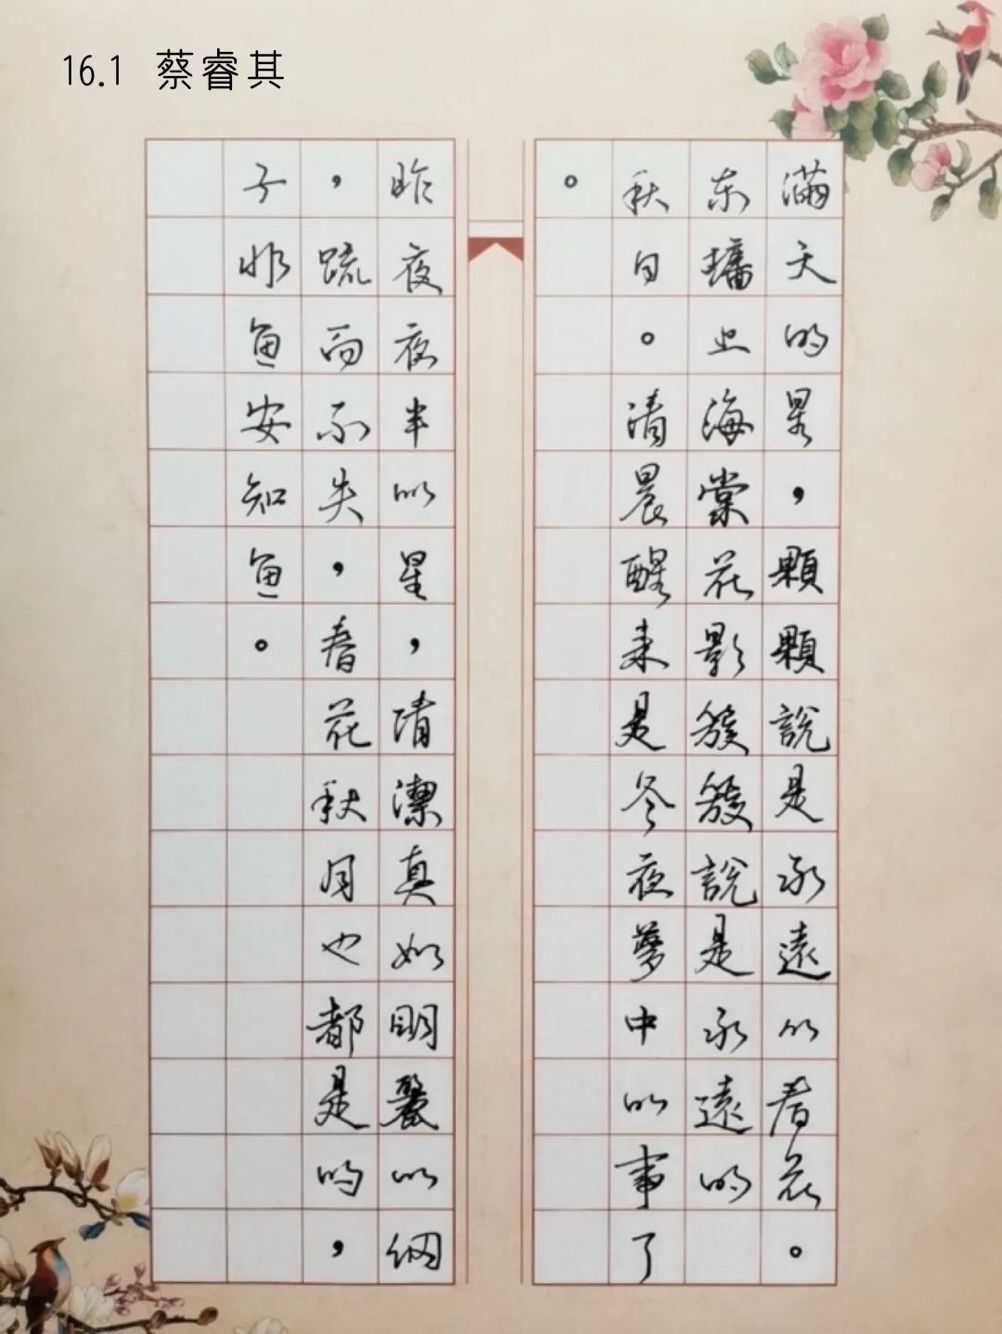 16.1 蔡睿其
滿天的星，顆顆說是永遠的春花。
东墻上海棠花影簇簇說是永遠的
秋月。清晨醒来是冬夜夢中的事了
。
昨夜夜半的星，清潔真如明麗的網
，疏而不失，春花秋月也都是的，
子非鱼安知鱼。